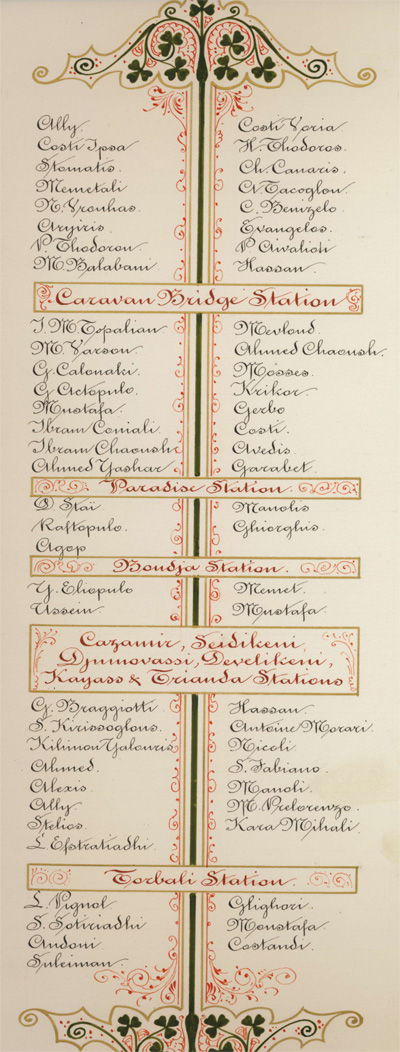 Ally.
Costi Ipsa
Stomatis.
Memetali
N. Vronhas.
Aryiris.
P. Thodorou.
M. Balabani.
Costi Voria
H. Thodoros.
Ch. Canaris.
A. Tacoglou.
C. Benizelo.
Evangelos.
P. Aivalioti
Hassan.
Caravan Bridge Station
I. M. Topalian
M. Varsou.
G. Calonaki.
G. Actopulo.
Mustafa.
Ibram Coniali.
Ibram Chaoush
Ahmed Yashar
Mevloud.
Ahmed Chaoush.
Mosses.
Krikor
Gerbo
Costi.
Avedis.
Garabet.
Paradise Station.
D Staï
Raftopulo.
Agop
Manolis
Ghiorghis.
Boudja Station.
Y. Eliopulo
Ussein.
Memet.
Mustafa.
Cazamir, Seidikeui,
Djumovassi, Develikeui,
Kayass & Trianda Stations
G. Braggiotti
S. Kirissoglous.
Kilimon Yalouris
Ahmed.
Alexis.
Ally
Stelios.
L. Efstratiadhi
Hassan.
Antoine Morari.
Nicoli
S. Fabiano.
Manoli.
M. Prelorenzo.
Kara Mihali.
Torbali Station.
L. Vignol
S. Sotiriadhi
Andoni
Suleiman.
Glighori.
Moustafa.
Costandi.